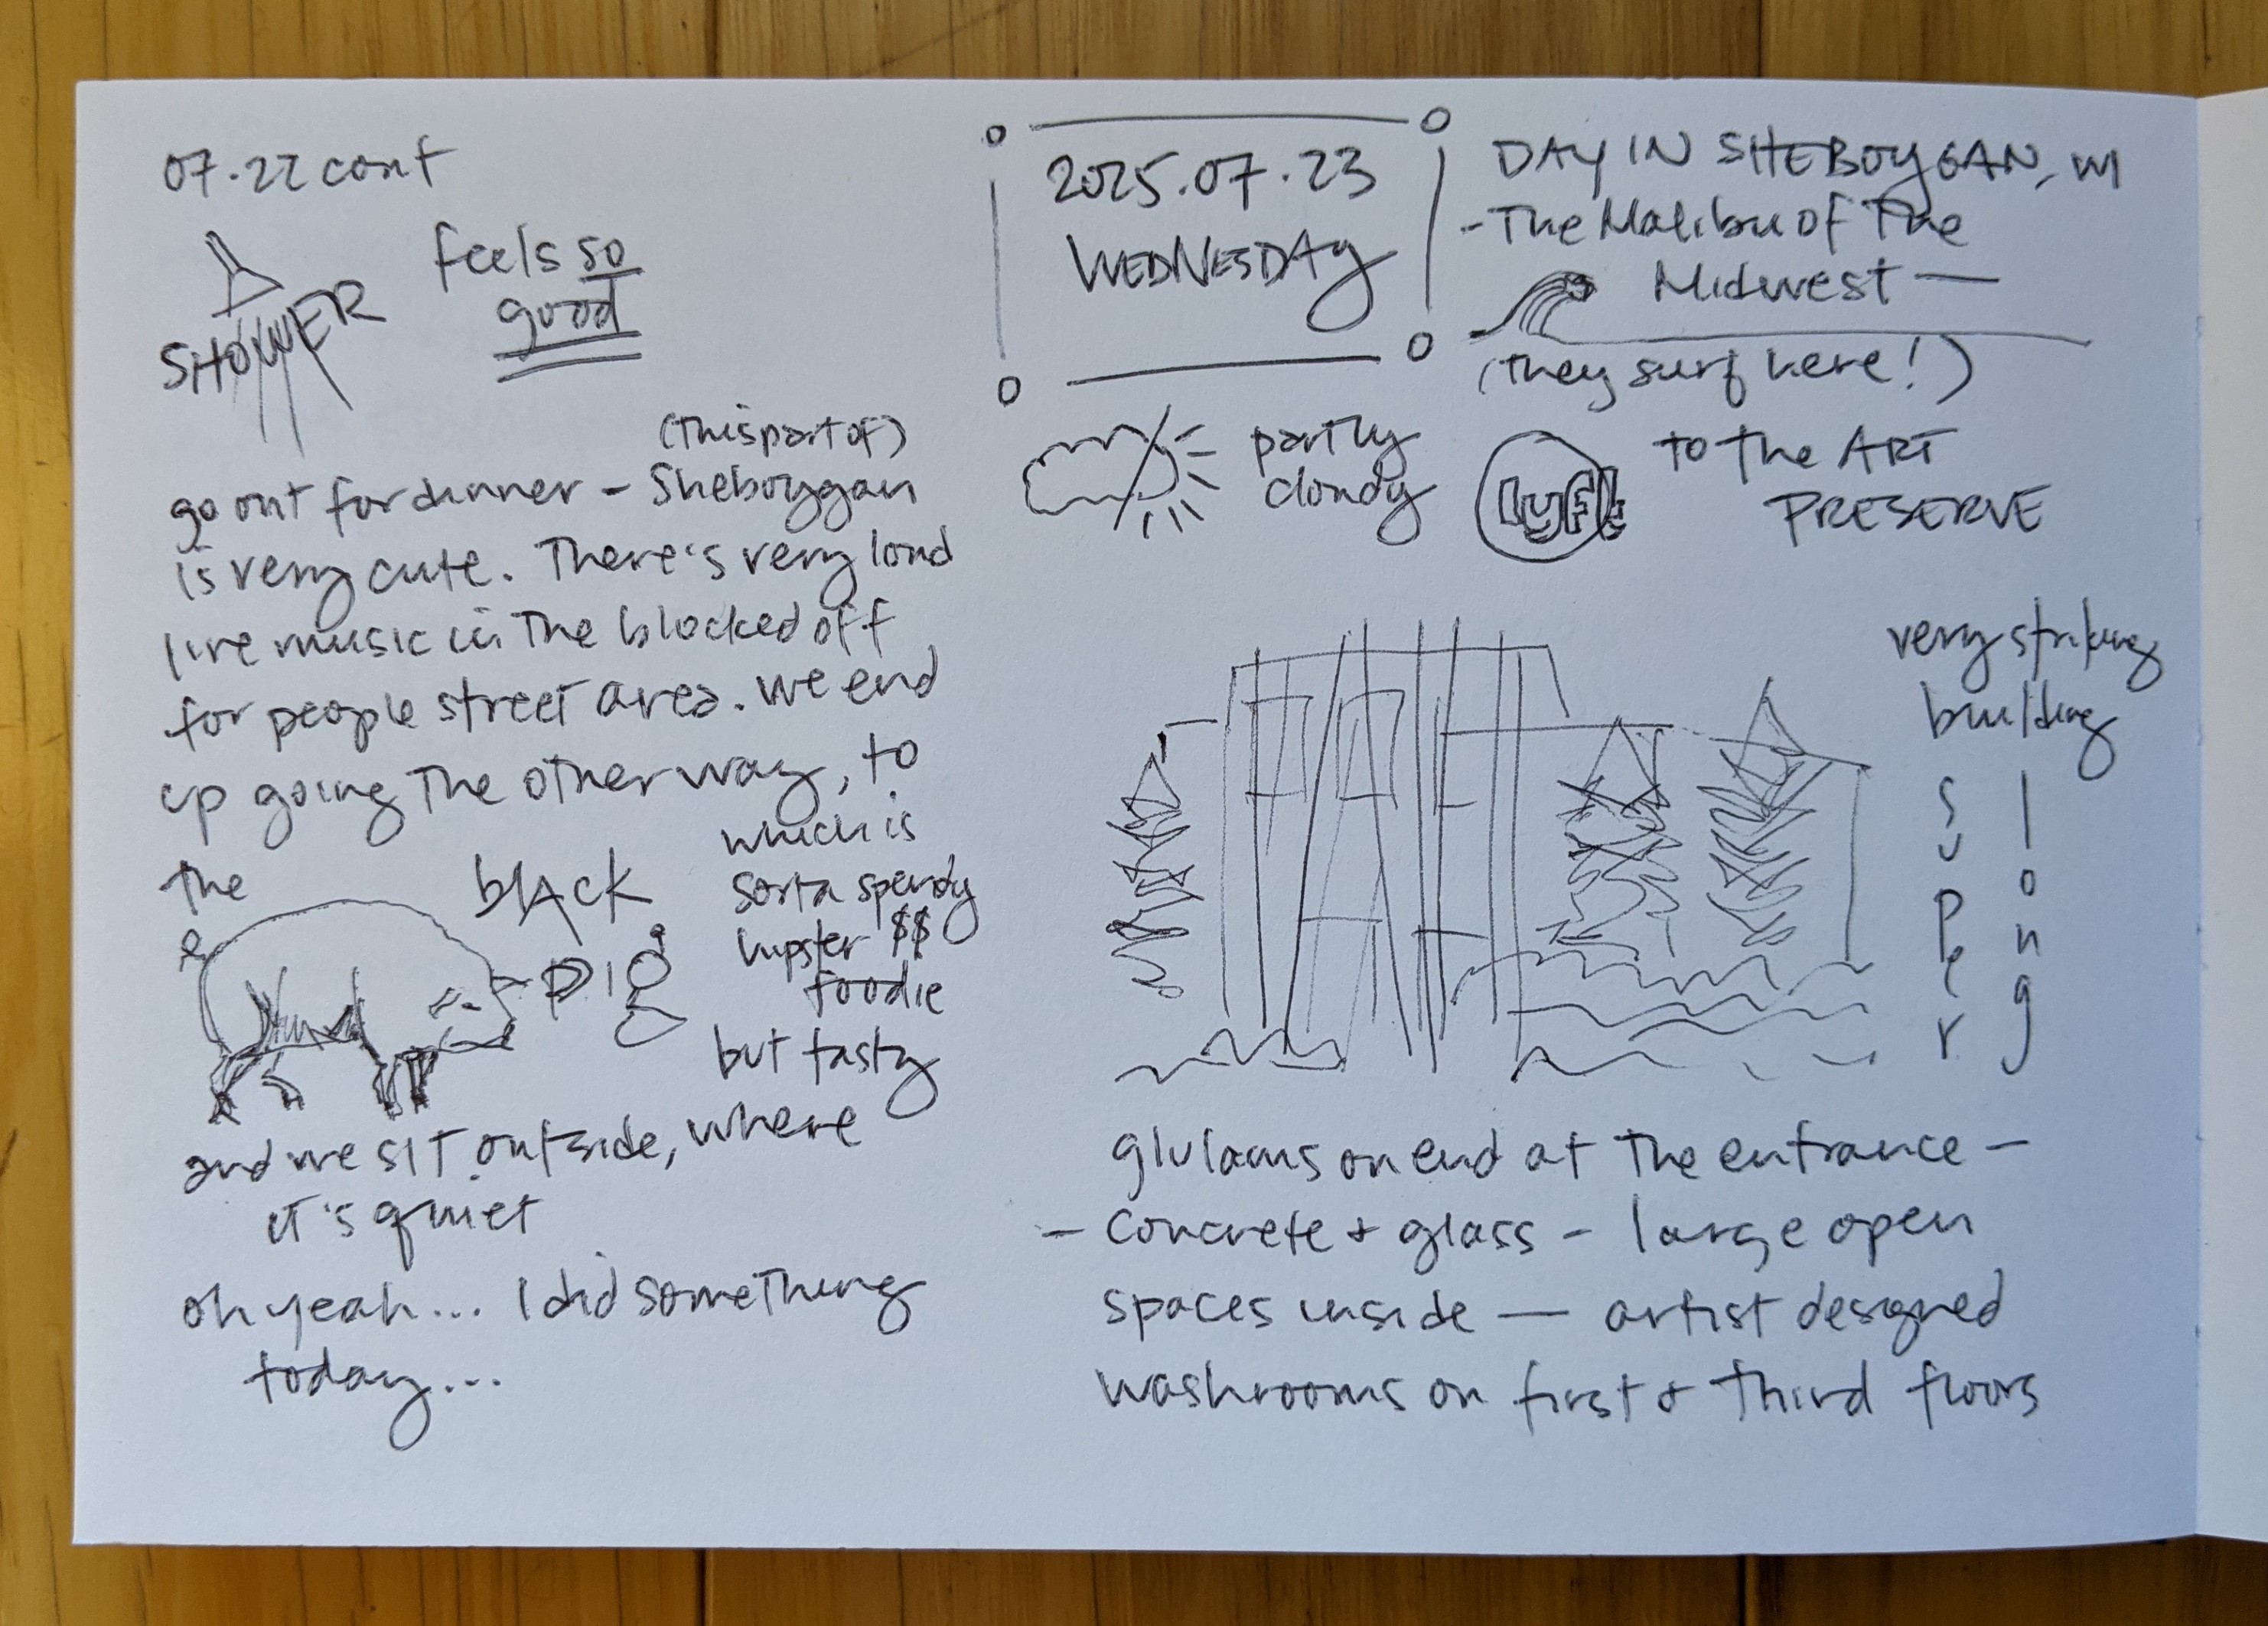 07.22 cont
SHOWER
feels so
good
(this part of)
go out for dinner – Sheboygan
is very cute. There's very loud
live music in the blocked off
for people street area. We end
up going the other way, to
the
black
pig
which is
sorta spendy
hipster $$
foodie
but tasty
and we sit outside, where
it's quiet
oh yeah... I did something
today...
2025.07.23
WEDNESDAY
DAY IN SHEBOYGAN, WI
- The Malibu of The
Midwest —
(they surf here!)
partly
cloudy
Lyft
to the ART
PRESERVE
very striking
building
super
long
glulams on end at the entrance –
– concrete + glass – large open
spaces inside — artist designed
washrooms on first + third floors